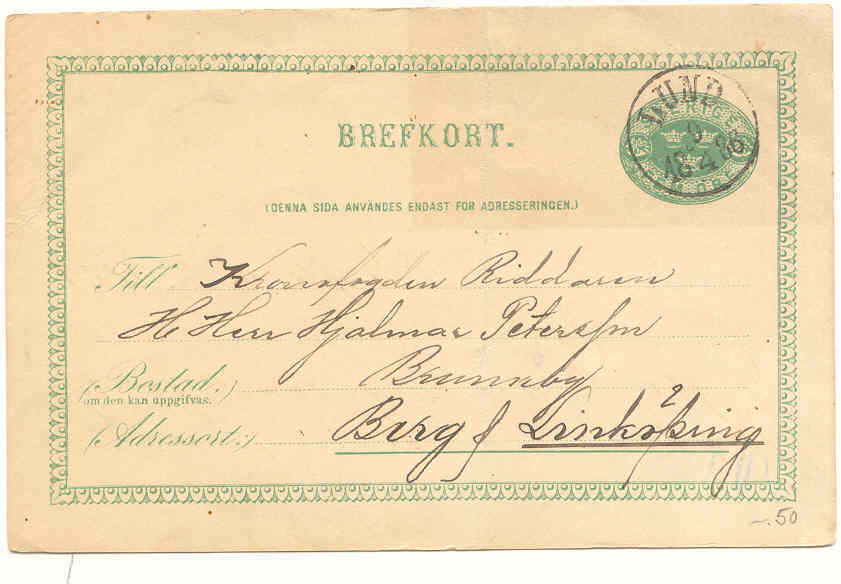 BREFKORT.
LUND
18 4 86
(DENNA SIDA ANVÄNDES ENDAST FÖR ADRESSERINGEN.)
Till Kronofogden Riddaren
H Herr Hjalmar Petersson
(Bostad.) Brunneby
om den kan uppgifvas.
(Adressort:) Berg Linköping
50